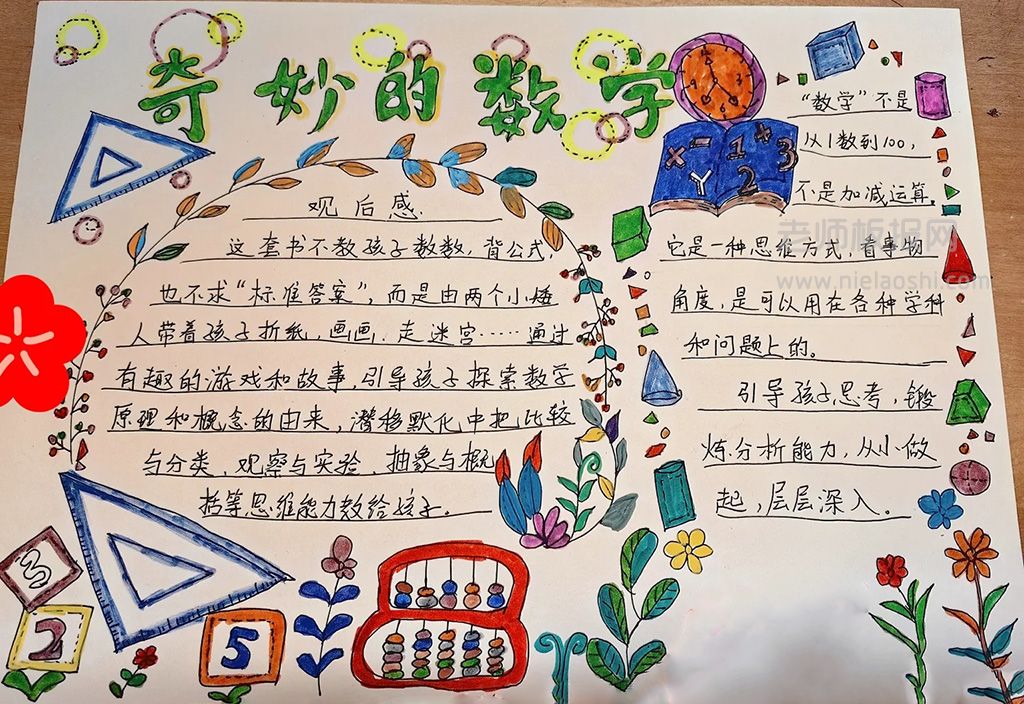 奇妙的数学
观后感.
这套书不教孩子数数,背公式,
也不求“标准答案”,而是由两个小矮
人带着孩子折纸,画画.走迷宫……通过
有趣的游戏和故事,引导孩子探索数学
原理和概念的由来,潜移默化中把比较
与分类、观察与实验、抽象与概
括等思维能力教给孩子。
“数学”不是
从1数到100,
不是加减运算.
它是一种思维方式,看事物
角度,是可以用在各种学科
和问题上的。
引导孩子思考,锻
炼分析能力,从小做
起,层层深入。
X - 1 + 3
Y 2
3
2
5
老师板报网
www.nielaoshi.com